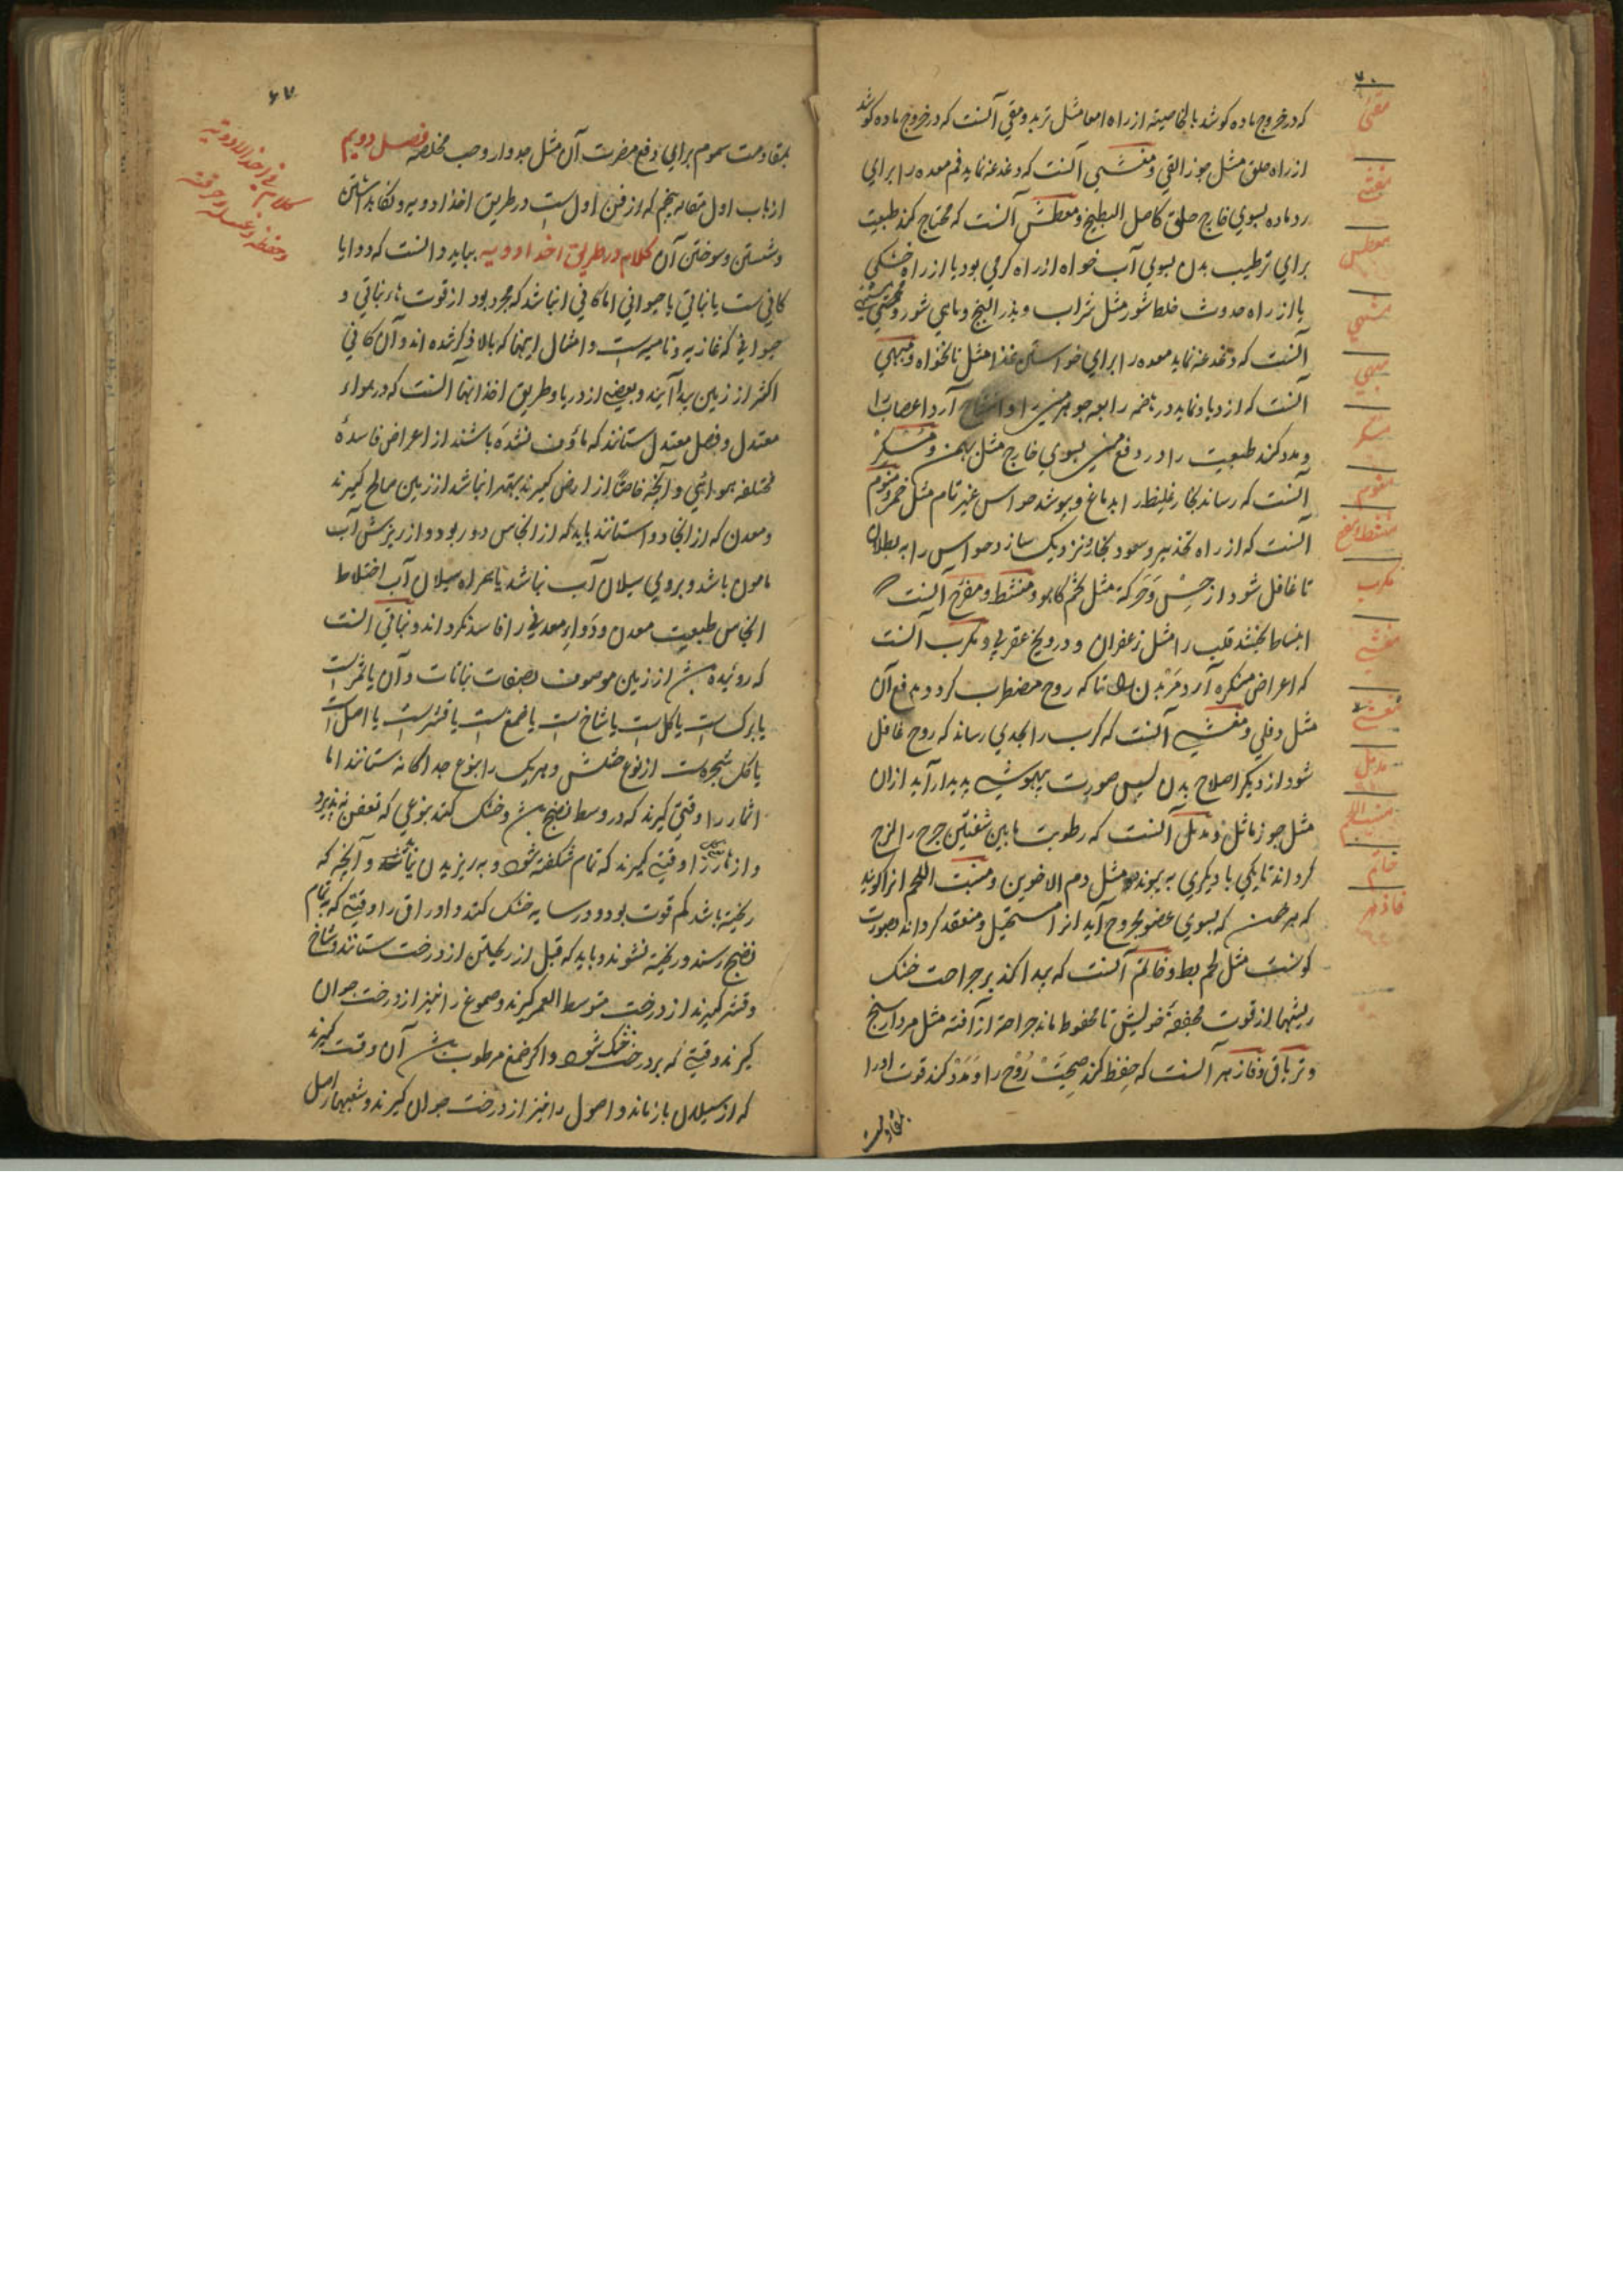 ۷۰
که در خروج ماده کوشد بالخاصیة از راه امعا مثل تربد و مقی آنست که در خروج ماده کوشد
از راه حلق مثل جوز القی و مغشی آنست که دغدغه نماید فم معده را برای
رد ماده بسوی خارج حلق کاصل البطیخ و معطش آنست که محتاج کند طبیعت
برای ترطیب بدن بسوی آب خواه از راه گرمی بود یا از راه خشکی
یا از راه حدوث خلط شور مثل شراب و بذر البنج و ماهی شور و مشتهی
آنست که دغدغه نماید معده را برای خواستن غذا مثل نانخواه و مبهی
آنست که ازدیاد نماید در هاضمه رابعه جوهر منی را و آرد اعصاب را
و مدد کند طبیعت را در دفع منی بسوی خارج مثل بهمن و مسکر
آنست که رساند بخار غلیظ را به دماغ و بپوشد حواس غیر تام مثل خمر و منوم
آنست که از راه تخدیر و صعود بخار نزدیک سازد حواس را به بطلان
تا غافل شود از حس و حرکة مثل تخم کاهو و منشط و مفرح آنست که
انبساط بخشد قلب را مثل زعفران و درونج عقربی و مکرب آنست
که اعراض منکره آرد مر بدن را تا که روح مضطرب گردد بدفع آن
مثل دفلی و مغشی آنست که کرب را بحدی رساند که روح غافل
شود از دیگر اصلاح بدن پس صورت بیهوشی پدیدار آید ازان
مثل جوز ماثل و مدمل آنست که رطوبت مابین شفتین جرح را لزج
گرداند تا یکی با دیگری به پیوندد مثل دم الاخوین و منبت اللحم انرا گویند
که هر خون که بسوی عضو مجروح آید انرا مستحیل و منعقد گرداند بصورت
گوشت مثل لحم بط و خاتم آنست که پیدا کند بر جراحت خشک
ریشها از قوت مجففه خویش تا محفوظ ماند جراحة از آفته مثل مردارسنج
و تریاق و فازهر آنست که حفظ کند صحت روح را و مدد کند قوت او را
بمقاومت
مقی
مغثی
معطش
مشتهی
مبهی
مسکر
منوم
منشط و مفرح
مکرب
مغشی
مدمل
منبت اللحم
خاتم
فازهر
۶۷
بمقاومت سموم برای دفع مضرت آن مثل جدوار و حب مخلصه فصل دویم
از باب اول مقاله پنجم که از فن اول است در طریق اخذ ادویه و نگاهداشتن
و شستن و سوختن آن کلام در طریق اخذ ادویه بباید دانست که دوا یا
کانی ست یا نباتی یا حیوانی اما کانی انباشد که مجرد بود از قوت نار نباتی و
حیوانی که غاذیه و نامیه است و امثال اینها که بالا ذکر شده اند و آن کانی
اکثر از زمین پیدا آیند و بعضی از دریا و طریق اخذ انها آنست که در هواء
معتدل و فصل معتدل ستانند که ماؤف نشده باشند از اعراض فاسدهٔ
مختلفه هوائی و آنچه خاصةً از ارض گیرند بهتر انباشد از زمین صالح گیرند
و معدن که از انجا دوا ستانند باید که از انجاس دور بود و از ریزش آب
مامون باشد و بروی سیلان آب نباشد تا همراه سیلان آب اختلاط
انجاس طبیعت معدن و دواء معدنی را فاسد نگرداند و نباتی آنست
که روئیده از زمین موصوف بصفات نباتات و آن یا ثمر است
یا برگ است یا گل است یا شاخ است یا صمغ است یا قشر است یا اصل است
یا کل شجره است از نوع خشش و هریک را بنوع جداگانه ستانند اما
اثمار را وقتی گیرند که در وسط نضج باشد و خشک کنند بنوعی که تعفن نه پذیرد
و ازهار را وقتی گیرند که تمام شگفته شود و به ریزیدن نیامده و آنچه که
ریخته باشد کم قوت بود و در سایه خشک کنند و اوراق را وقتی که تمام
نضج رسند و ریخته نشوند و باید که قبل از ریختن از درخت ستانند و شاخ
و قشر گیرند از درخت متوسط العمر گیرند و صموغ را نیز از درخت جوان
گیرند وقتی که بر درخت خشک شود و اگر صمغ مرطوب باشد آن وقت گیرند
که از سیلان باز ماند و اصول را نیز از درخت جوان گیرند و
کلام فی اخذ الادویه
و حفظه و غسله و حرقه